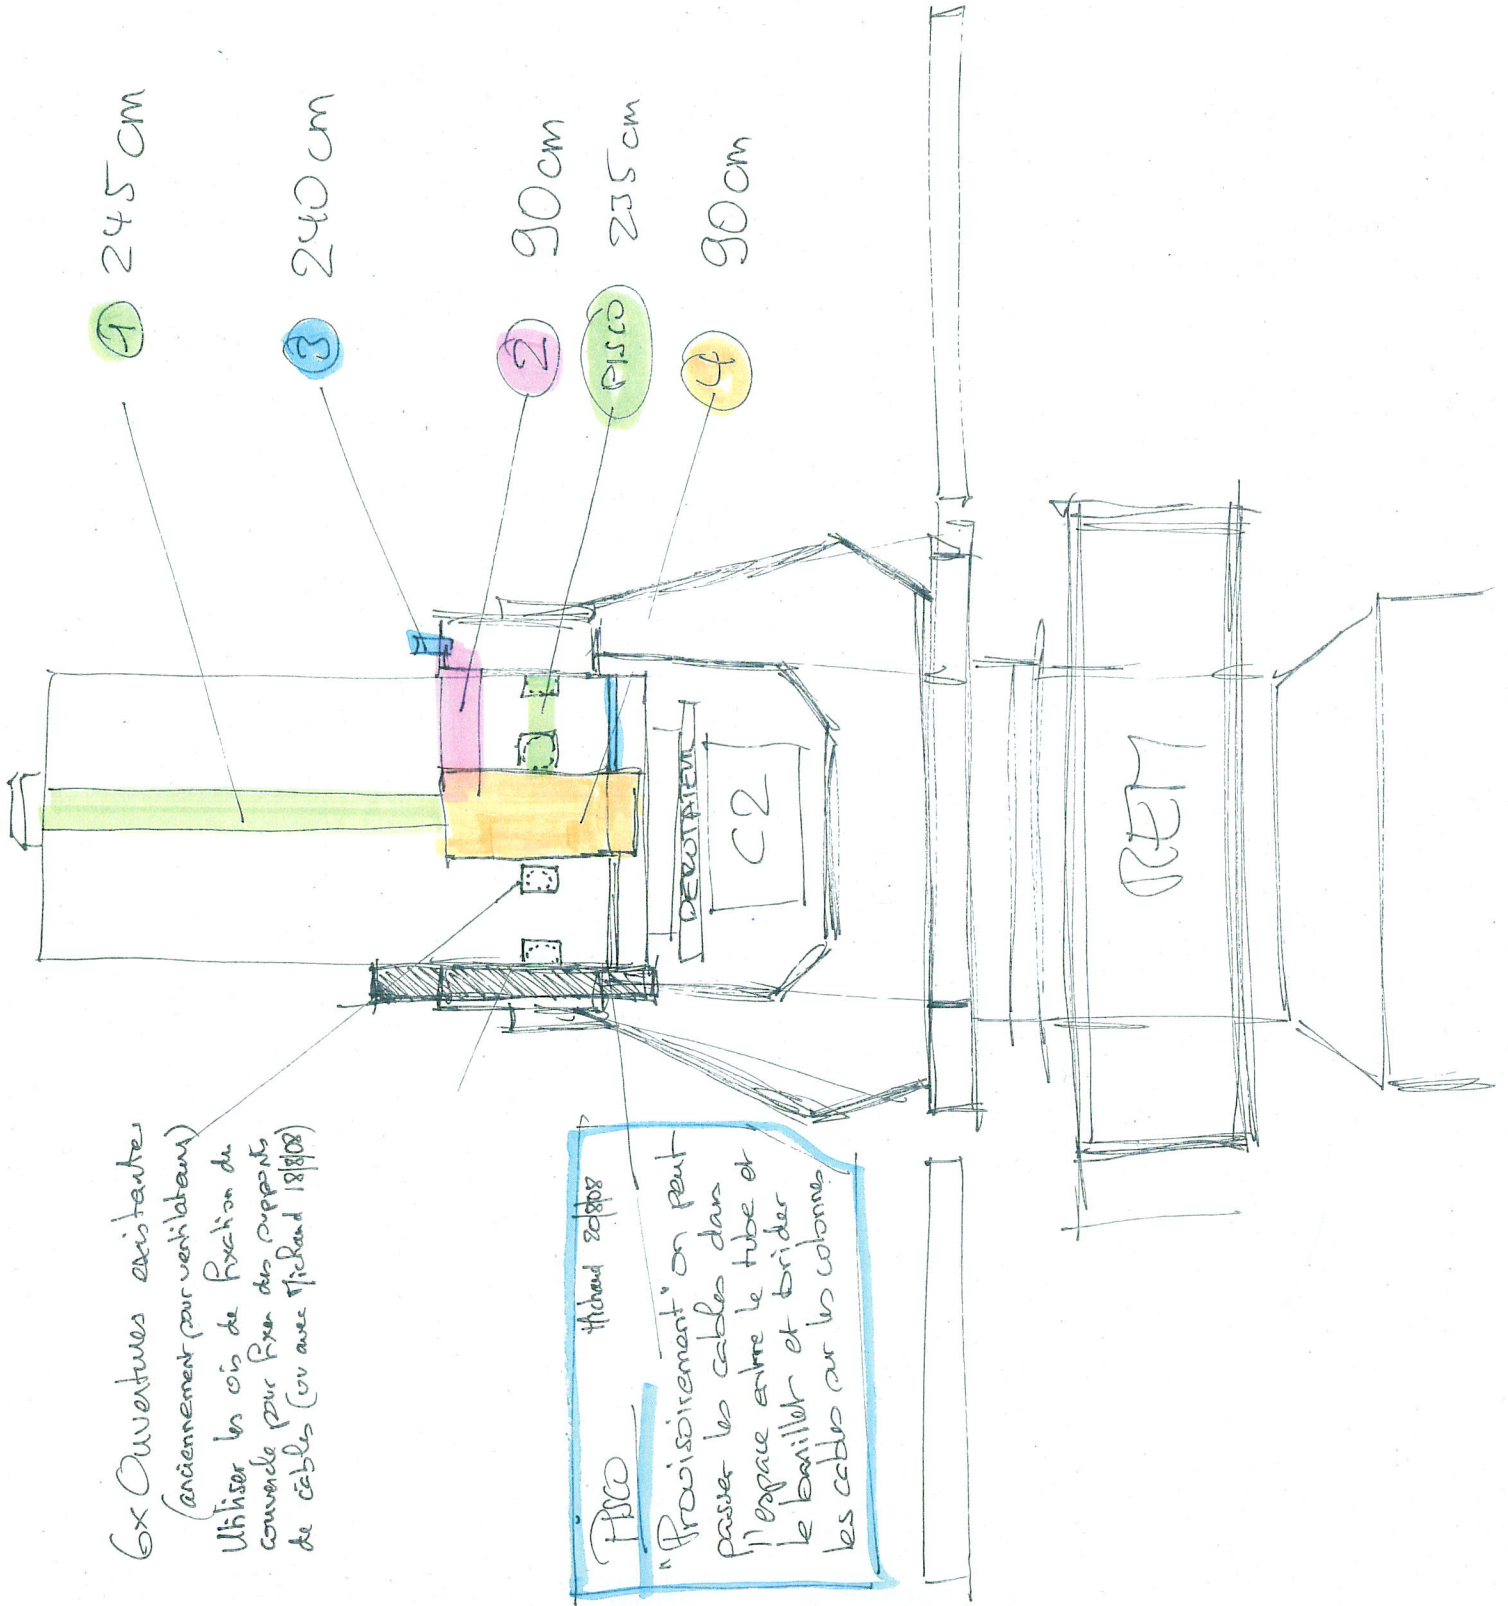 6x Ouvertures existantes
(anciennement pour ventilateurs)
Utiliser les vis de fixation du
couvercle pour fixer des supports
de câbles (vu avec Michaud 18/8/08)
PISCO Michaud 20/8/08
"Provisoirement" on peut
passer les cables dans
l'espace entre le tube et
le barillet et brider
les cables sur les colonnes
DEROTATEUR
C2
RET
1 245 cm
3 240 cm
2 90 cm
PISCO 235 cm
4 90 cm